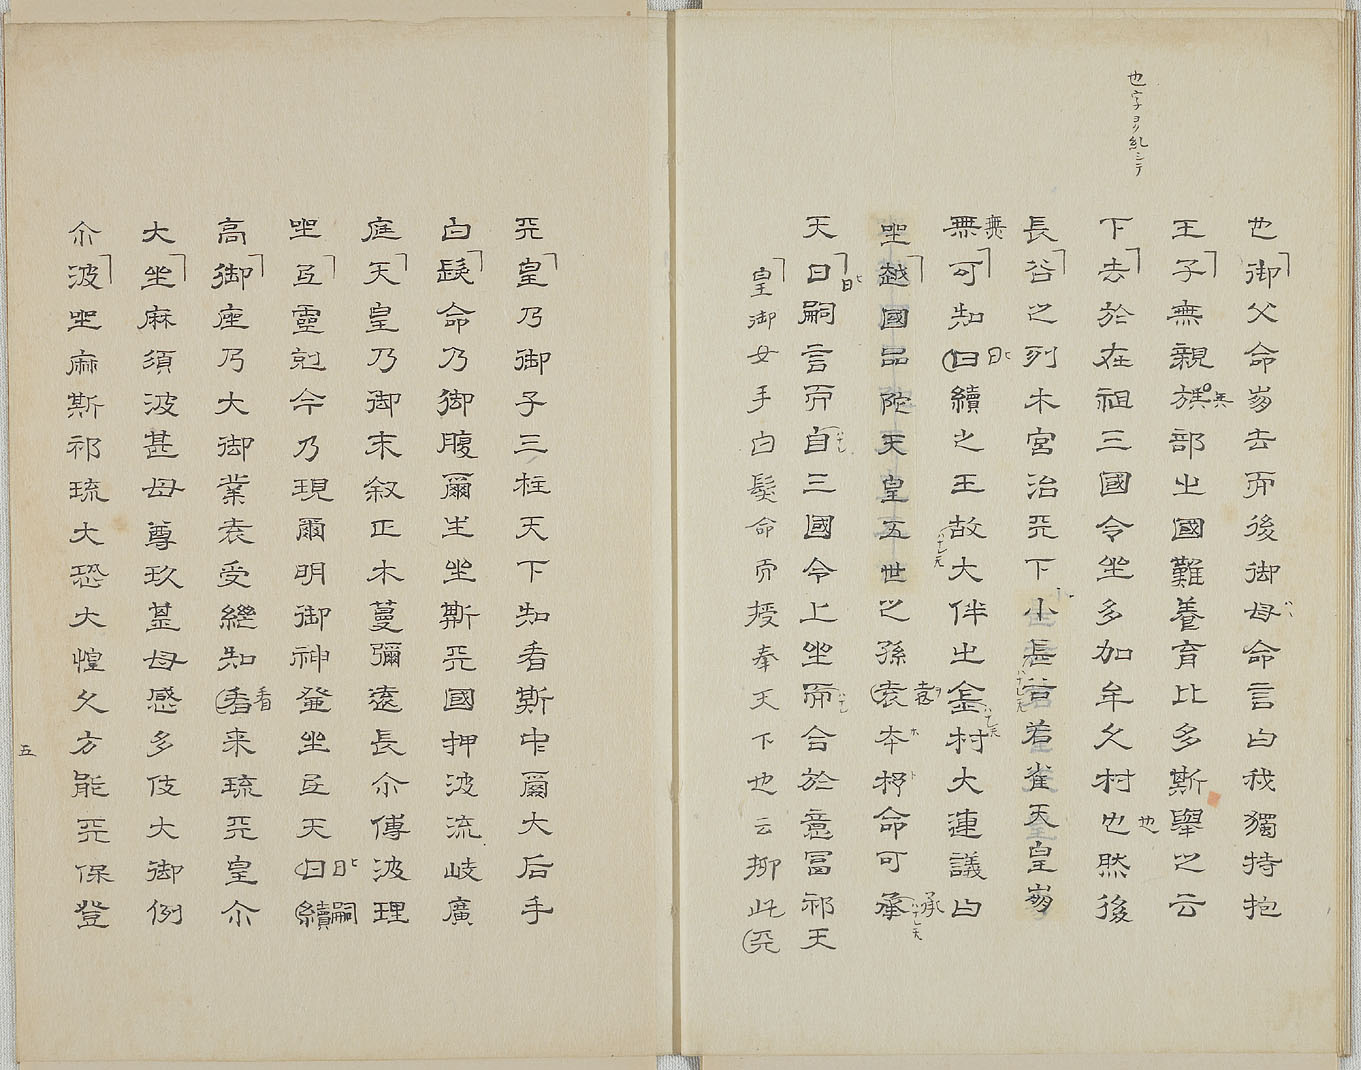 也字ヨリ糺シテ
也御父命崩去而後御母命言曰我獨持抱
王子無親族部出國難養育比多斯舉之云
下去於在祖三國令坐多加牟久村也然後
長谷之列木宮治天下小長谷若雀天皇崩
無可知日續之王故大伴出金村大連議曰
坐越國品陀天皇五世之孫袁本杼命可承
天日嗣言而自三國令上坐而合於意富祁天
皇御女手白髮命而授奉天下也云抑此天
天皇乃御子三柱天下知看斯中爾大后手
白髮命乃御腹爾生坐斯天國押波流岐廣
庭天皇乃御末叙正木蔓彌遠長尓傳波理
坐亙靈剋今乃現爾明御神登坐亙天日續
高御座乃大御業袁受繼知看来琉天皇尓
大坐麻須波甚母尊玖甚母感多伎大御例
尓波坐麻斯祁琉大恐大惶久方能天保登
五